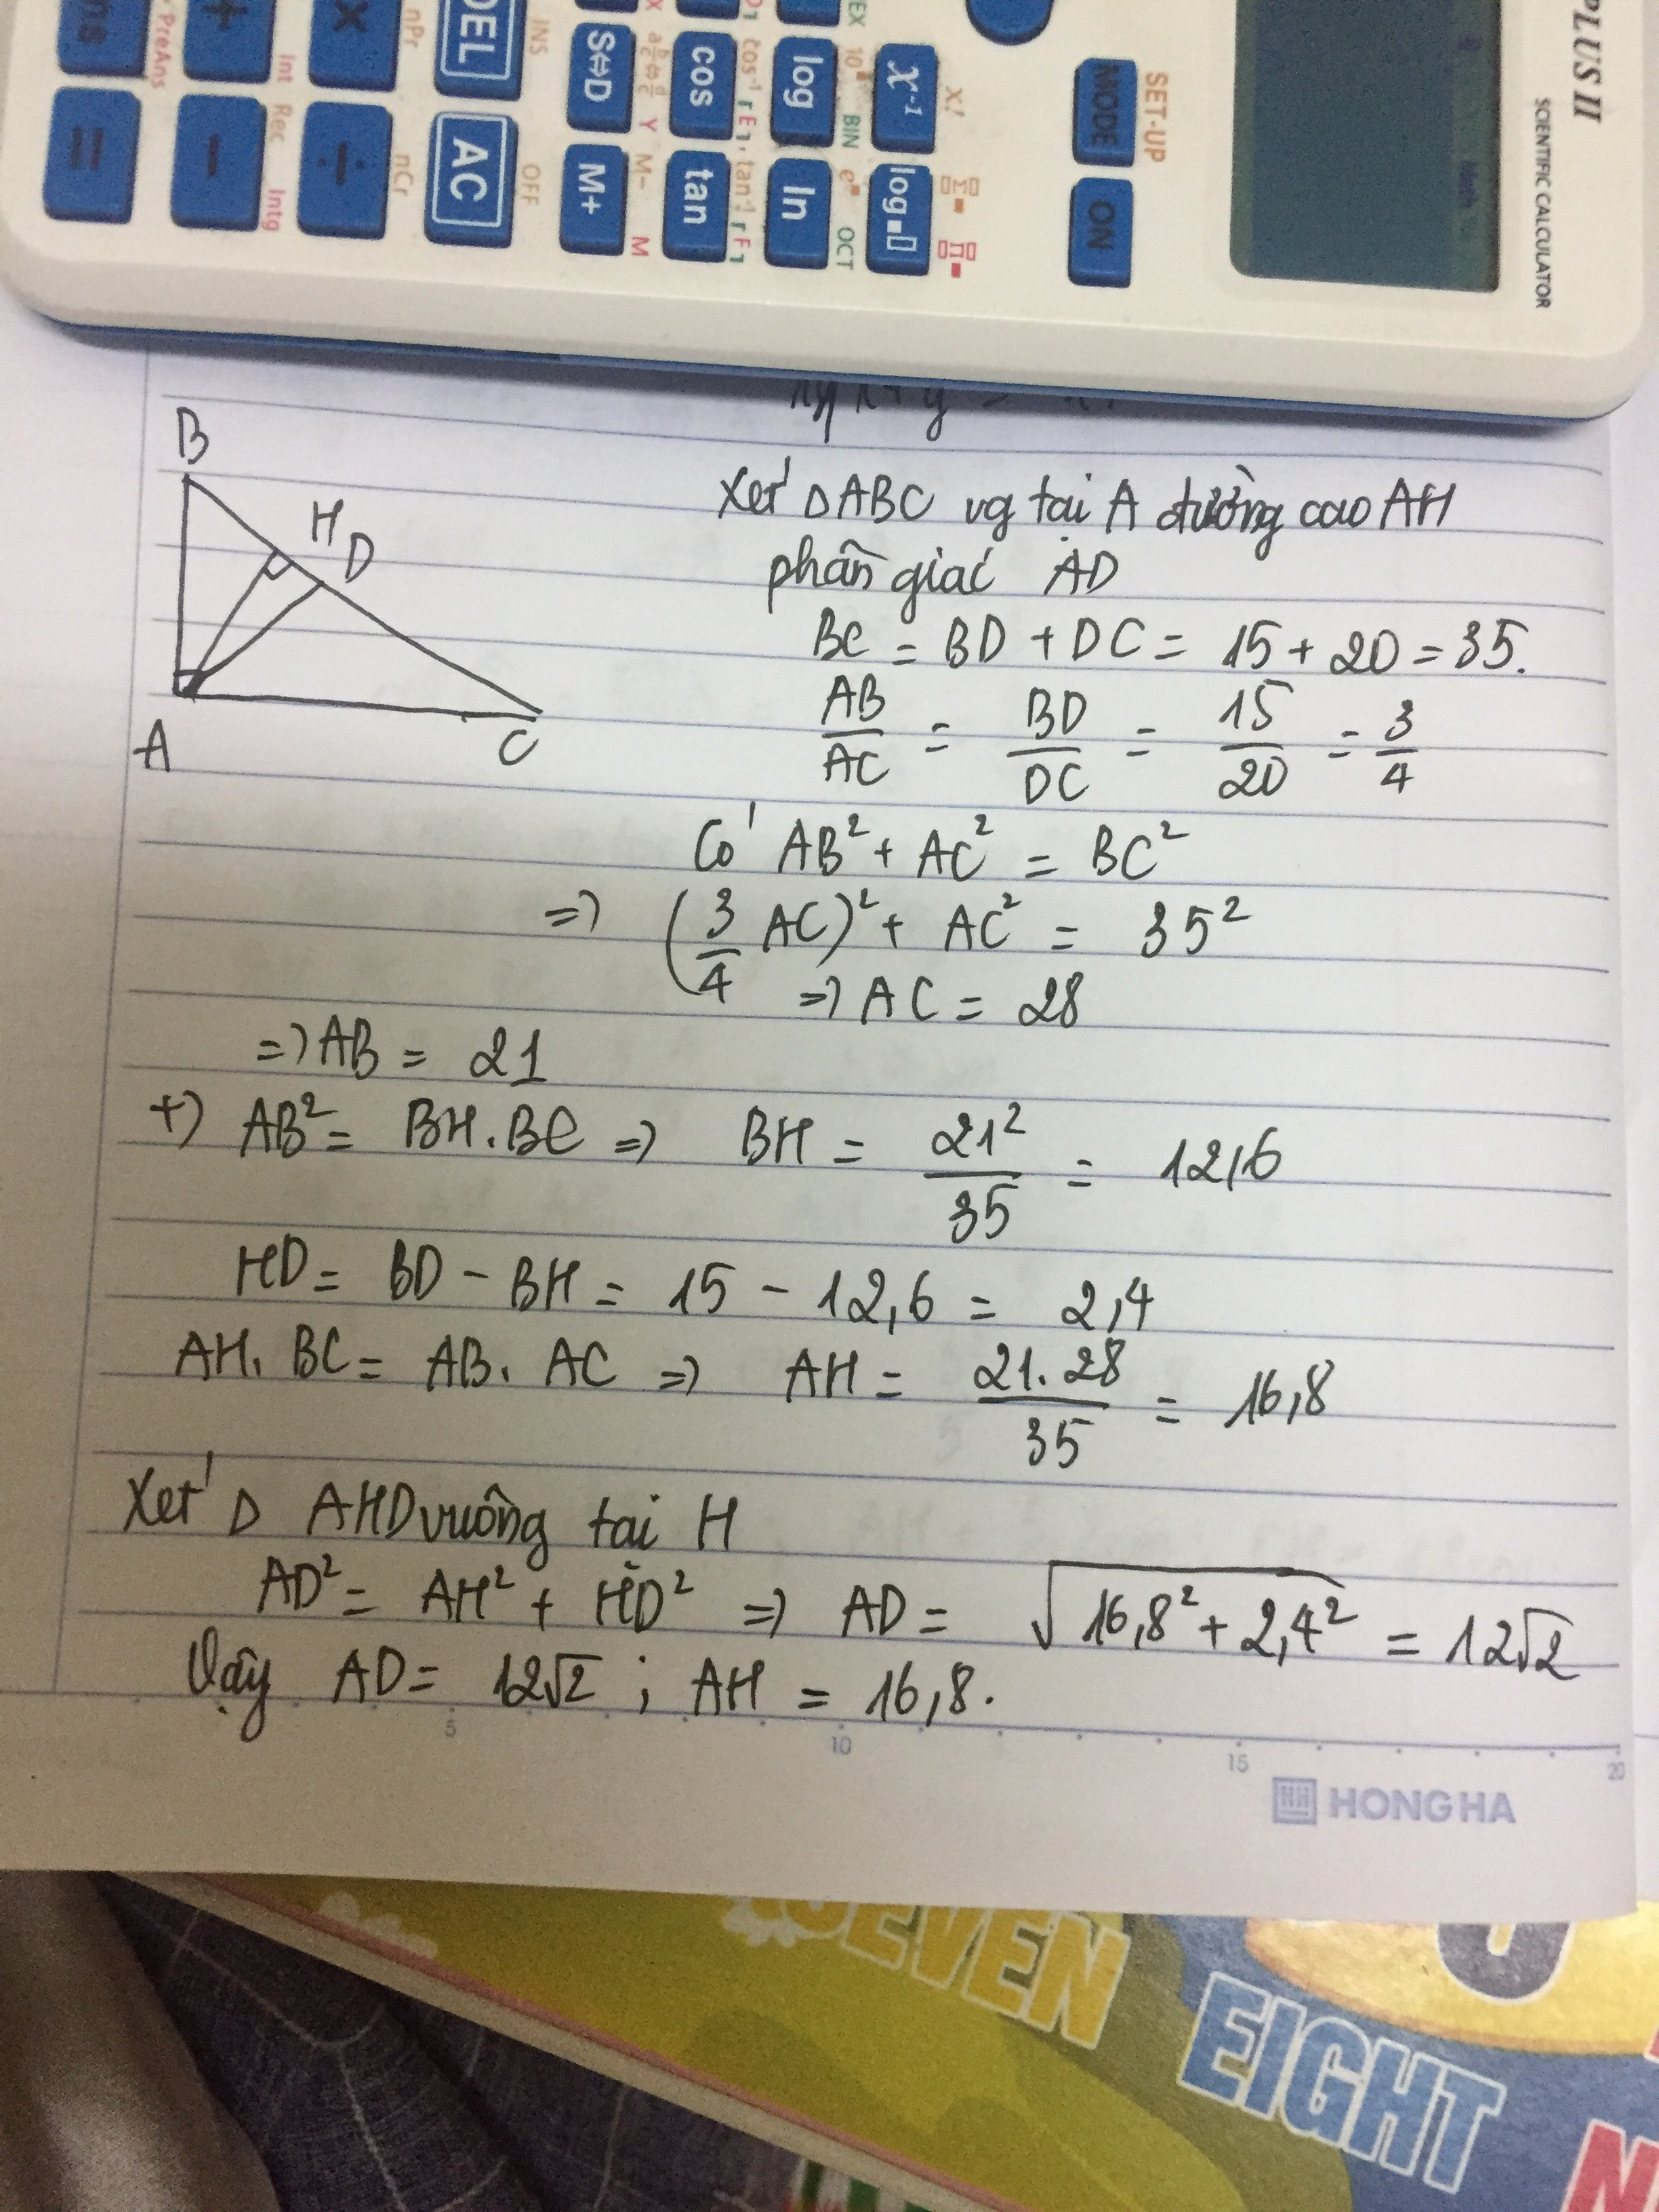 PLUS II
SCIENTIFIC CALCULATOR
SET-UP
MODE
ON
x!
x⁻¹
log
BIN
OCT
log
ln
cos⁻¹
tan⁻¹
cos
tan
S⇔D
M+
M-
M
Y
INS
OFF
DEL
AC
nPr
nCr
×
÷
Int
Rec
Intg
+
-
PreAns
=
B
H
D
A
C
Xét △ABC vg tại A đường cao AH
phân giác AD
BC = BD + DC = 15 + 20 = 35.
AB/AC = BD/DC = 15/20 = 3/4
Có AB² + AC² = BC²
=> (3/4 AC)² + AC² = 35²
=> AC = 28
=> AB = 21
+) AB² = BH.BC => BH = 21²/35 = 12,6
HD = BD - BH = 15 - 12,6 = 2,4
AH. BC = AB. AC => AH = 21.28/35 = 16,8
Xét △ AHD vuông tại H
AD² = AH² + HD² => AD = √(16,8² + 2,4²) = 12√2
Vậy AD = 12√2 ; AH = 16,8.
5 10 15 20
HONG HA
SEVEN
EIGHT
N